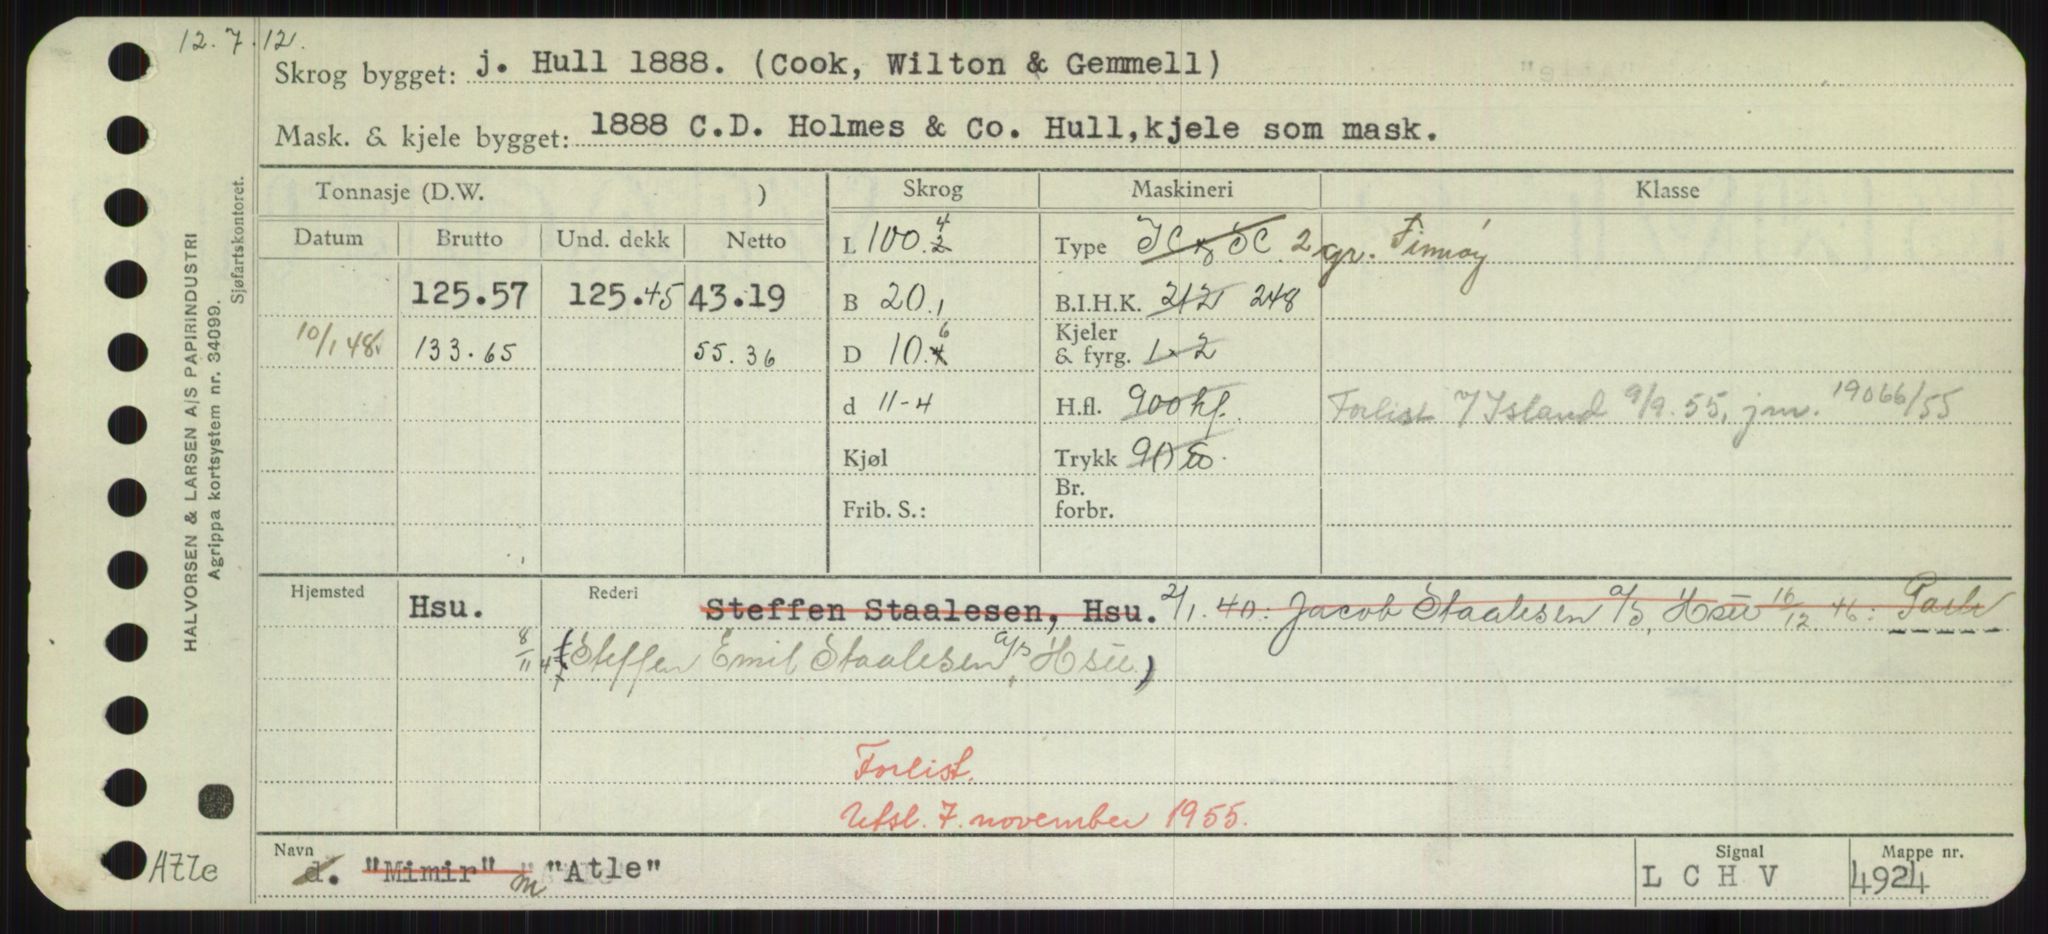 12.7.12.
Skrog bygget: j. Hull 1888. (Cook, Wilton & Gemmell)
Mask. & kjele bygget: 1888 C.D. Holmes & Co. Hull, kjele som mask.
Tonnasje (D.W. ) Skrog Maskineri Klasse
Datum Brutto Und. dekk Netto L 100.2 4 Type 2 gr. Finnøy
125.57 125.45 43.19 B 20.1 B.I.H.K. 212 248
Kjeler
10/1 48. 133.65 55.36 D 10.4 6 & fyrg. 1-2
d 11-4 H.fl. 900 hf. Forlist v/ Island 9/9.55, jnr. 19066/55
Kjøl Trykk
Br.
Frib. S.: forbr.
Hjemsted Hsu. Rederi Steffen Staalesen, Hsu. 2/1.40: Jacob Staalesen a/s, Hsu 16/12 46:
8/11 4 (Steffen Emil Staalesen a/s, Hsu.)
Forlist.
Utsl. 7. november 1955.
Navn d. "Mimir" m "Atle" Signal L C H V Mappe nr. 4924
Atle
HALVORSEN & LARSEN A/S PAPIRINDUSTRI
Agrippa kortsystem nr. 34099.
Sjøfartskontoret.